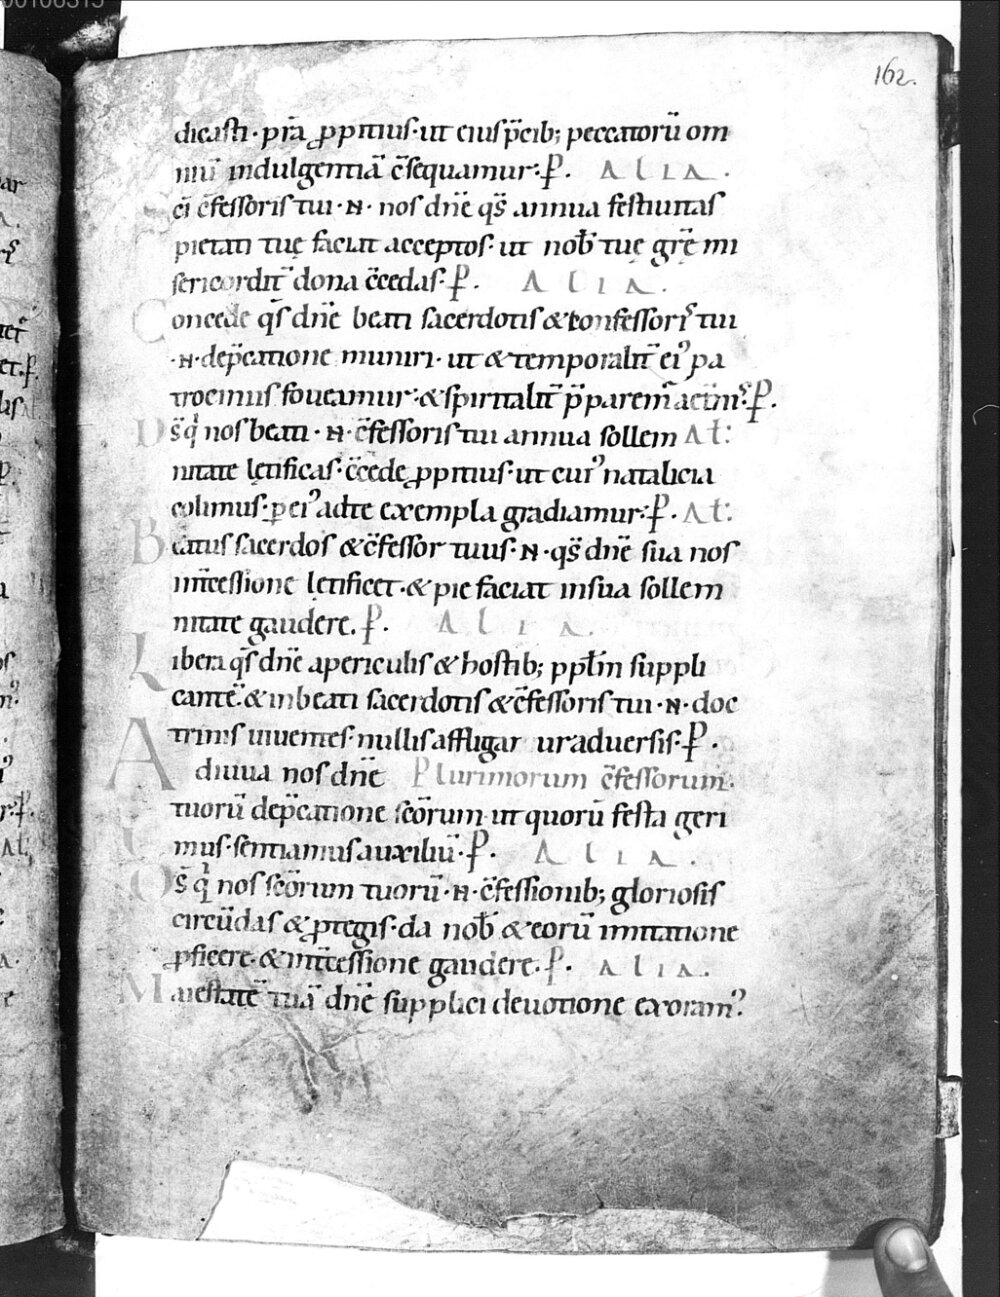 162.
dicasti· p̄rā ꝓpitius· ut eius p̄cib; peccatorū om
niū indulgentiā c̄sequamur:· P. ALIA.
c̄i c̄fessoris tui ·N· nos dn̄e q̄s annua festiuitas
pietati tuę faciat acceptos· ut nob̄ tuę gr̄ę mi
sericordit̄ dona c̄cedas· P. ALIA.
Concede q̄s dn̄e beati sacerdotis & confessoris tui
·N· dep̄catione muniri· ut & temporalit̄ ei᾽ pa
trociniis foueamur:
D s̄ q' nos beati ·N· c̄fessoris tui annua sollem Al̄:
nitate lętificas· c̄cede ꝓpitius· ut cui᾽ natalicia
colimus· ꝑ ei᾽ ad te exempla gradiamur:· P. Al̄:
Beatus sacerdos & c̄fessor tuus· N· q̄s dn̄e sua nos
int̄cessione lętificet· & pie faciat in sua sollem
nitate gaudere. P. ALIA.
Libera q̄s dn̄e a periculis & hostib; pp̄lm suppli
cantē· & in beati sacerdotis & c̄fessoris tui ·N· doc
trinis uiuentes· nullis affligat᾽ aduersis· P.
Adiuua nos dn̄e Plurimorum c̄fessorum.
tuorū dep̄catione sc̄orum· ut quorū festa geri
mus· sentiamus auxiliū· P. ALIA.
D s̄ q' nos sc̄orum tuorū ·N· c̄fessionib; gloriosis
circūdas & ꝓtegis· da nob̄ & eorū imitatione
ꝓficere· & int̄cessione gaudere· P. ALIA.
Maiestatē tuā dn̄e supplici deuotione exoram᾽